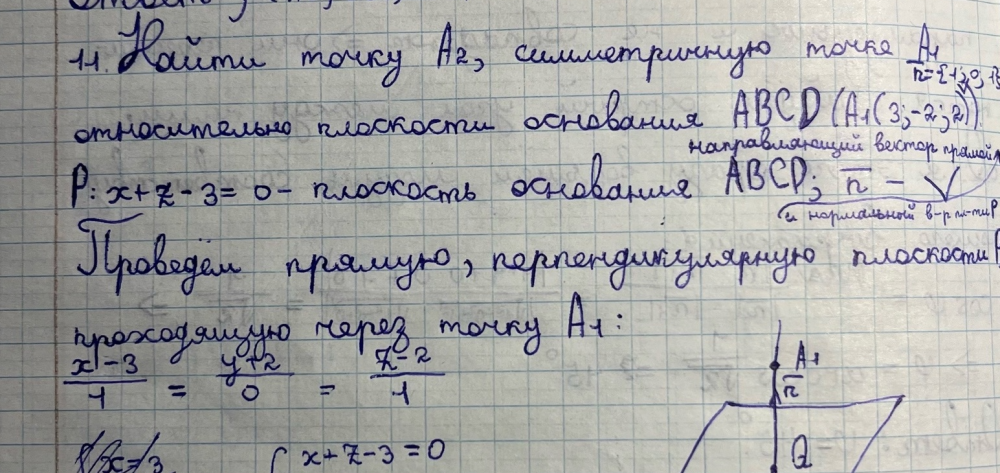 11. Найти точку A2, симметричную точке A1
n={1;0;1}
относительно плоскости основания ABCD (A1(3;-2;2)).
направляющий вектор прямой
P: x+z-3=0 - плоскость основания ABCD; n -
и нормальный в-р пл-ти P
Проведём прямую, перпендикулярную плоскости P
проходящую через точку A1:
x-3/1 = y+2/0 = z-2/1
A1
n
x=3
{ x+z-3=0
Q